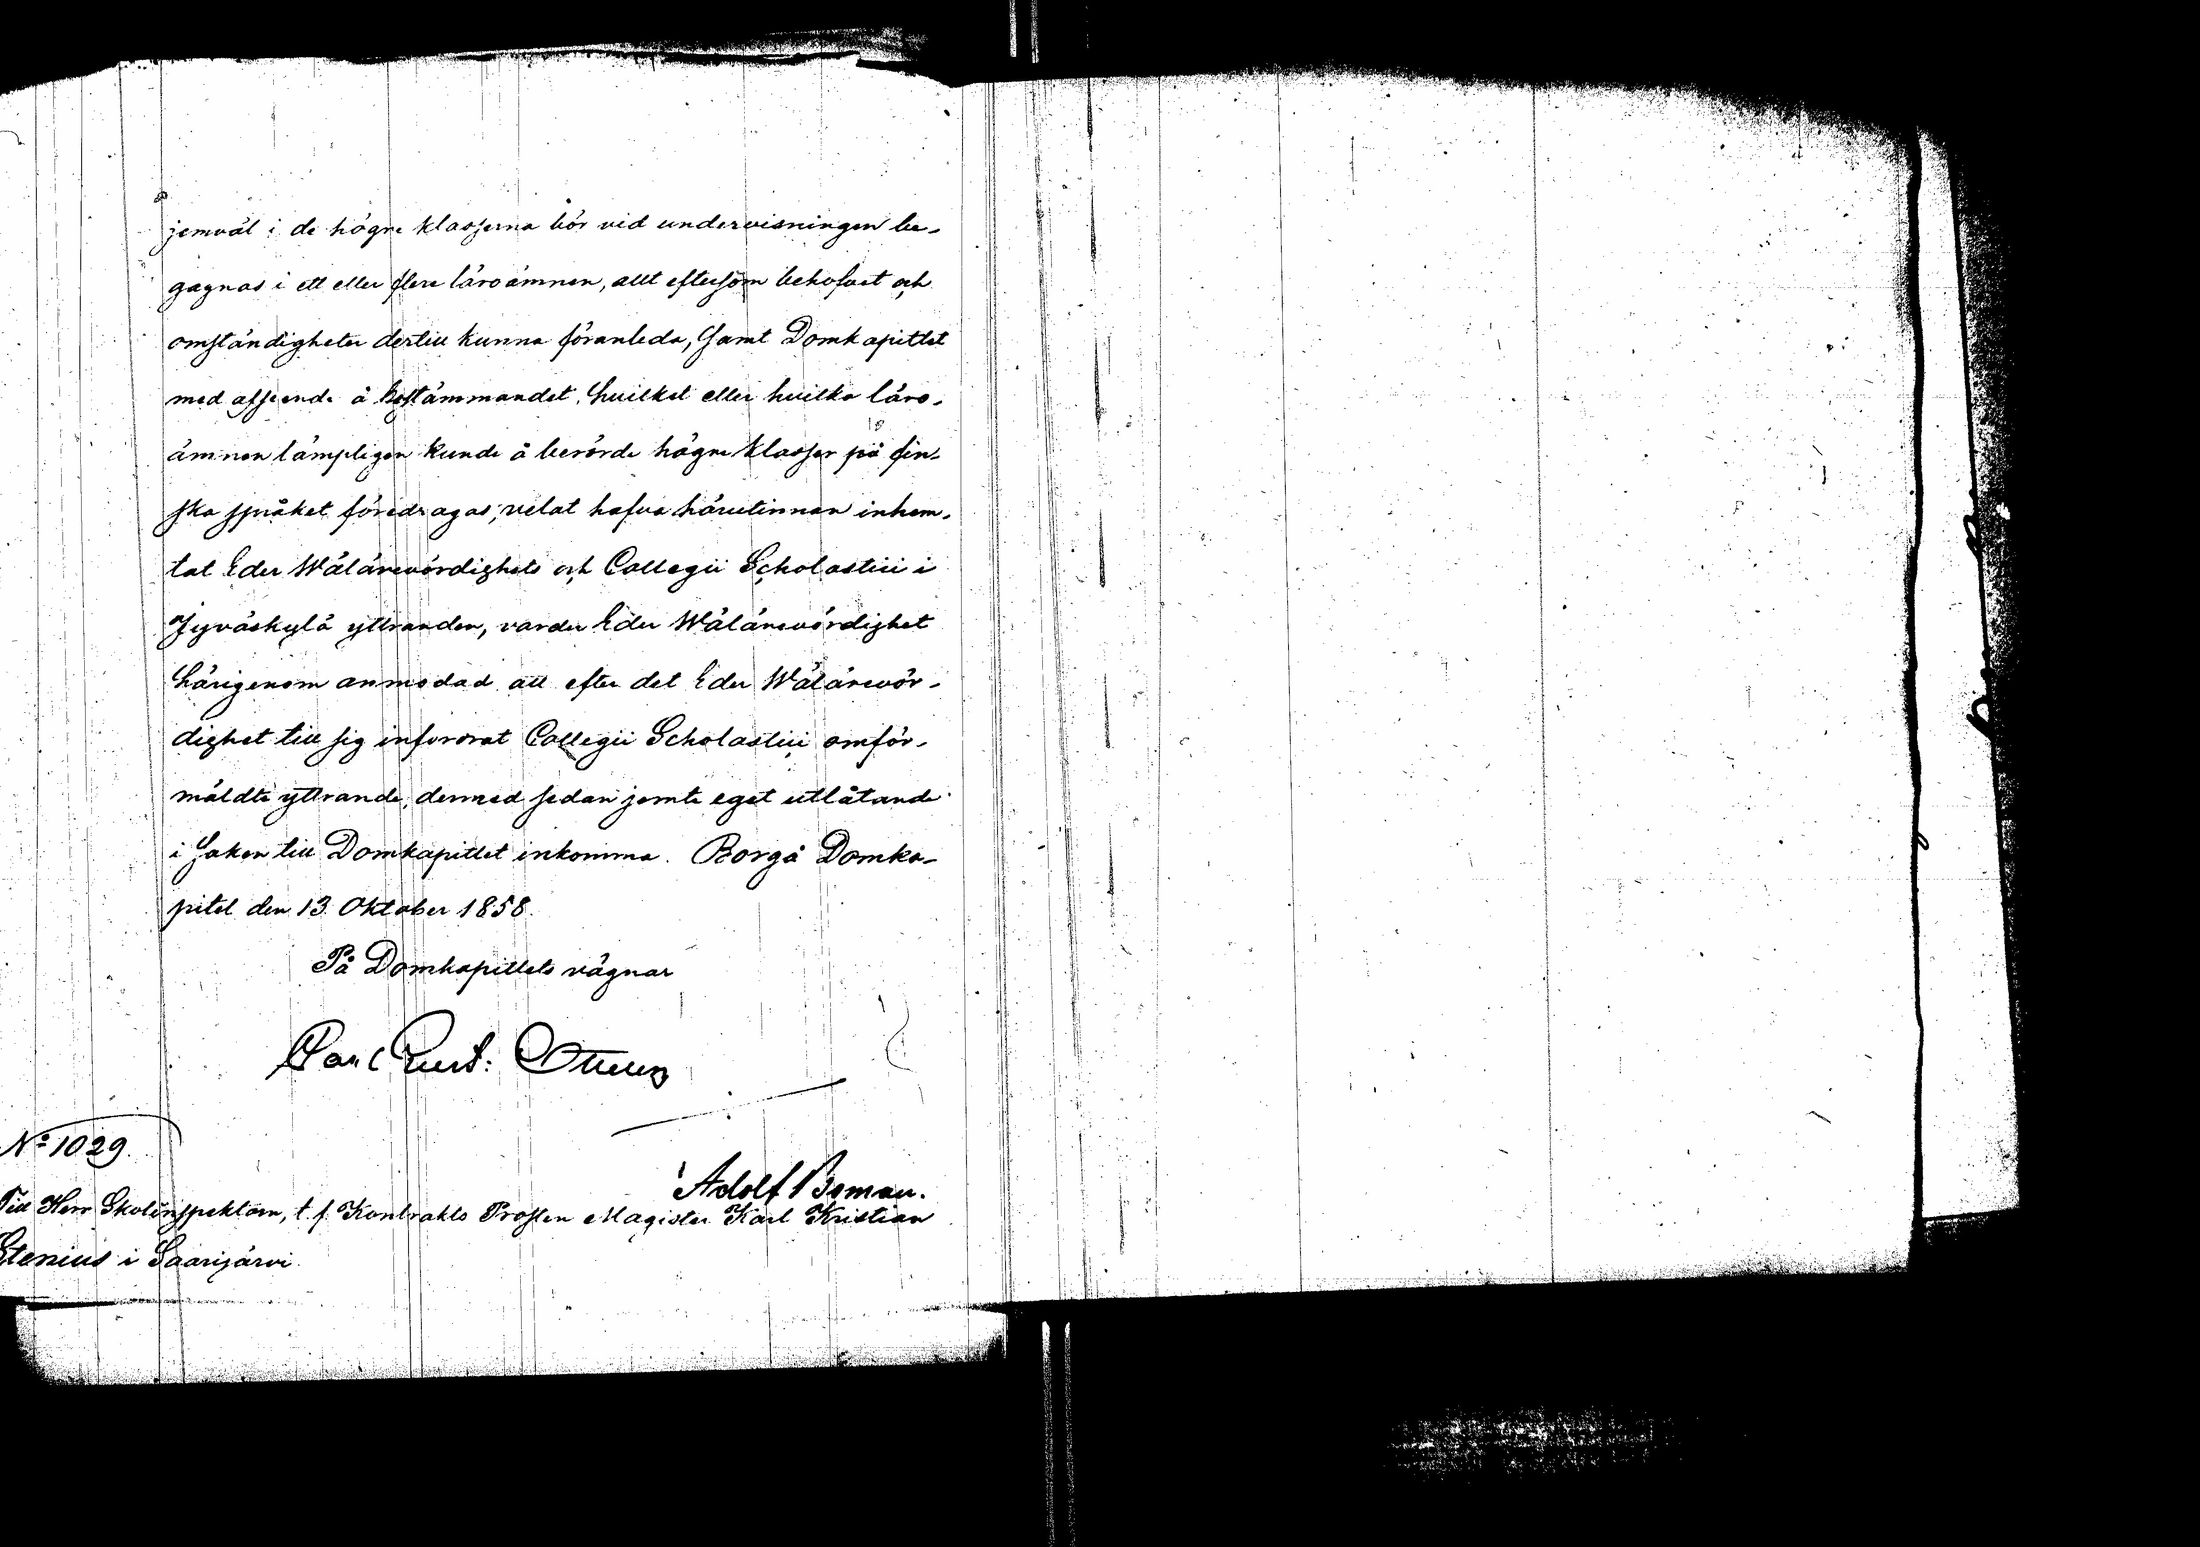 jemväl i de högre klasserna bör vid undervisningen be-
gagnas i ett eller flere läroämnen, allt eftersom behofvet och
omständigheter dertill kunna föranleda, samt Domkapitlet
med afseende å bestämmandet, hvilket eller hvilka läro-
ämnen lämpligen kunde å berörde högre klasser på fin-
ska språket föredragas, velat hafva härutinnan inhem-
tat Eder Wälärevördighets och Collegii Scholastici i
Jyväskylä yttranden, varder Eder Wälärevördighet
härigenom anmodad att efter det Eder Wälärevör-
dighet till sig infordrat Collegii Scholastici omför-
mäldte yttrande, dermed sedan jemte eget utlåtande
i saken till Domkapitlet inkomma. Borgå Domka-
pitel den 13 Oktober 1858.
På Domkapitlets vägnar
Carl Gust: Ottelin
No 1029.
Adolf Boman.
Till Herr Skolinspektorn, t. f. Kontrakts Prosten Magister Karl Kristian
Stenius i Saarijärvi